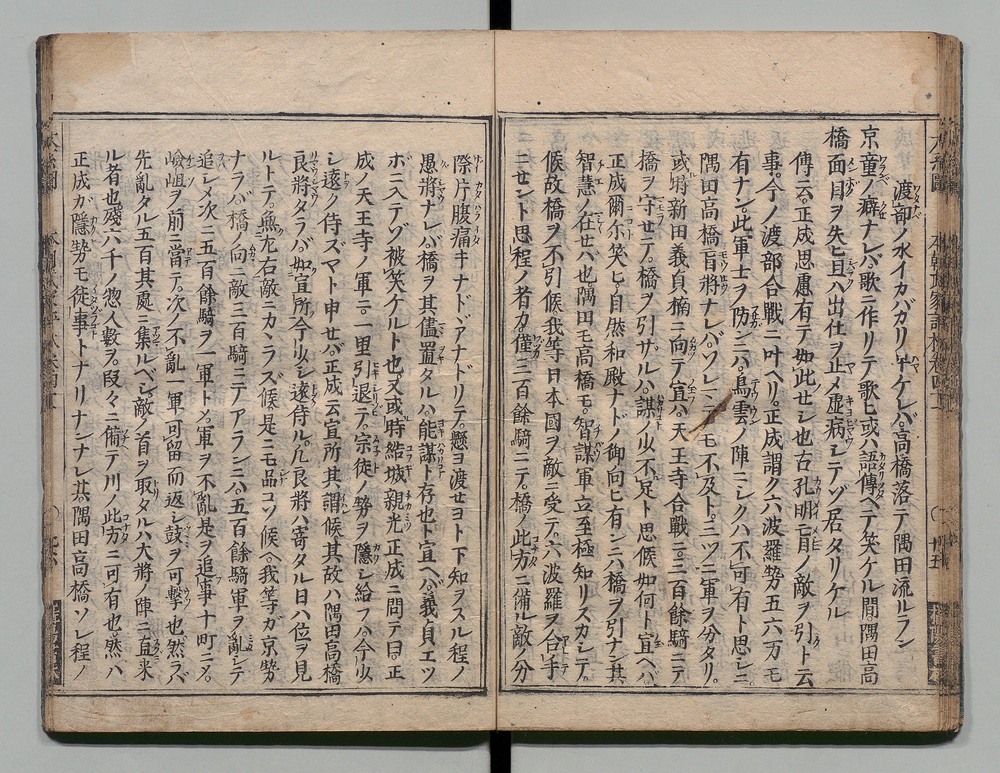 渡部ノ水イカバカリ早ケレバ高橋落テ隅田流ルラン
京童ノ癖ナレバ歌ニ作リテ歌ヒ或ハ語傳ヘテ笑ケル間隅田高
橋面目ヲ失ヒ且ハ出仕ヲ止メ虚病シテゾ居タリケル
傳ニ云正成思慮有テ如此セシ也古孔明盲ノ敵ヲ引ト云
事今ノ渡部合戰ニ叶ヘリ正成謂ク六波羅勢五六万モ
有ナン此軍士ヲ防ンニハ鳥雲ノ陣ニシクハ不可有ト思シニ
隅田高橋盲將ナレバソレニテモ不及ト三ツニ軍ヲ分タリ
或時新田義貞楠ニ向テ宣ハ天王寺合戰ニ三百餘騎ニテ
橋ヲ守セテ橋ヲ引サルハ謀ノ少不足ト思候如何ト宣ヘハ
正成爾尓笑ヒ自然和殿ナドノ御向ヒ有ンニハ橋ヲ引ナン其
智慧ノ在セハ也隅田モ高橋モ智謀軍立至極知リスカシテ
候故橋ヲ不引候我等日本國ヲ敵ニ受テ六波羅ヲ合手
ニセント思程ノ者カ僅三百餘騎ニテ橋ノ此方ニ備ル敵ノ分
際片腹痛キナドアナドリテ懸ヨ渡セヨト下知ヲスル程ノ
愚將ナレバ橋ヲ其儘置タルハ能謀ト存也ト宣ヘバ義貞エツ
ボニ入テゾ被笑ケルト也又或時結城親光正成ニ問テ曰正
成ノ天王寺ノ軍ニ一里引退テ宗徒ノ勢ヲ隱シ給フハ今少
シ遠ク侍ズマト申セバ正成云宣所其謂候其故ハ隅田高橋
良將タラバ如宣所今少シ遠侍ル凡良將ハ寄タル日ハ位ヲ見
ルトテ無左右敵ニカヽラズ候是ニモ品コソ候ヘ我等ガ京勢
ナラバ橋ノ向ニ敵三百騎ニテアランニハ五百餘騎軍ヲ亂シテ
追シメ次ニ五百餘騎ヲ一軍トメ軍ヲ不亂是ヲ追事十町ニメ
嶮岨ヲ前ニ當テ次ノ不亂一軍ハ可留而返シ鼓ヲ可撃也然ラバ
先亂タル五百其處ニ集ルベシ敵ノ首ヲ取タルハ大將ノ陣ニ直來
ル者也殘六千ノ惣人數ヲ段々ニ備テ川ノ此方ニ可有也然ハ
正成が隱勢モ徒事トナリナンナレ共隅田高橋ソレ程ノ